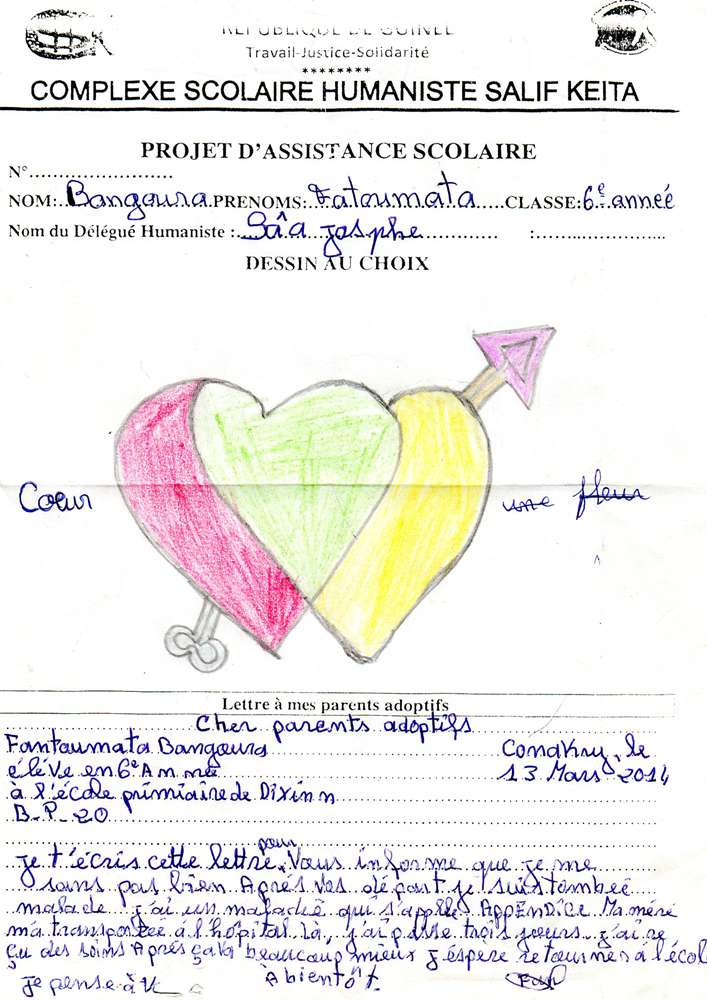 REPUBLIQUE DE GUINEE
Travail-Justice-Solidarité
********
COMPLEXE SCOLAIRE HUMANISTE SALIF KEITA
PROJET D'ASSISTANCE SCOLAIRE
N°........................
NOM:..Bangoura.PRENOMS:.Fatoumata.....CLASSE:6e.année
Nom du Délégué Humaniste :..Sâa josphe............... :.......................
DESSIN AU CHOIX
Coeur
une fleur
Lettre à mes parents adoptifs
Cher parents adoptifs
Fantoumata Bangoura Conakry, le
élève en 6e Année 13 Mars 2014
à l'école primiaire de Dixinn
B.P. 20
pour
je t'écris cette lettre Vous informe que je me
sans pas bien Après vos départ je suis tombée
malade j'ai un maladie qui s'appelle AppENDiCE Ma mère
m'a transportée à l'hopital là, j'ai passe trois jours j'ai re
çu des soins Après ça va beaucoup mieux j'éspère retournés à l'écol
je pense à A bientôt.